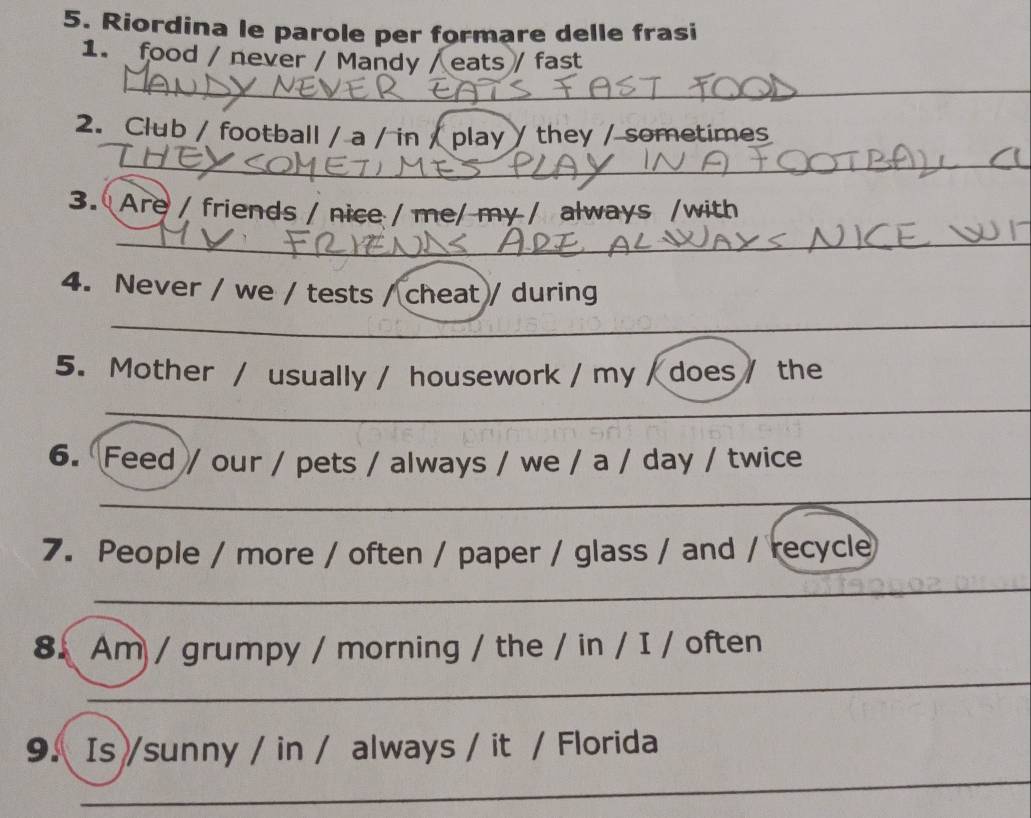 5. Riordina le parole per formare delle frasi
1. food / never / Mandy / eats / fast
MANDY NEVER EATS FAST FOOD
2. Club / football / a / in / play / they / sometimes
THEY SOMETIMES PLAY IN A FOOTBALL CL
3. Are / friends / nice / me/ my / always /with
MY FRIENDS ARE ALWAYS NICE WIT
4. Never / we / tests / cheat / during
5. Mother / usually / housework / my / does / the
6. Feed / our / pets / always / we / a / day / twice
7. People / more / often / paper / glass / and / recycle
8. Am / grumpy / morning / the / in / I / often
9. Is /sunny / in / always / it / Florida